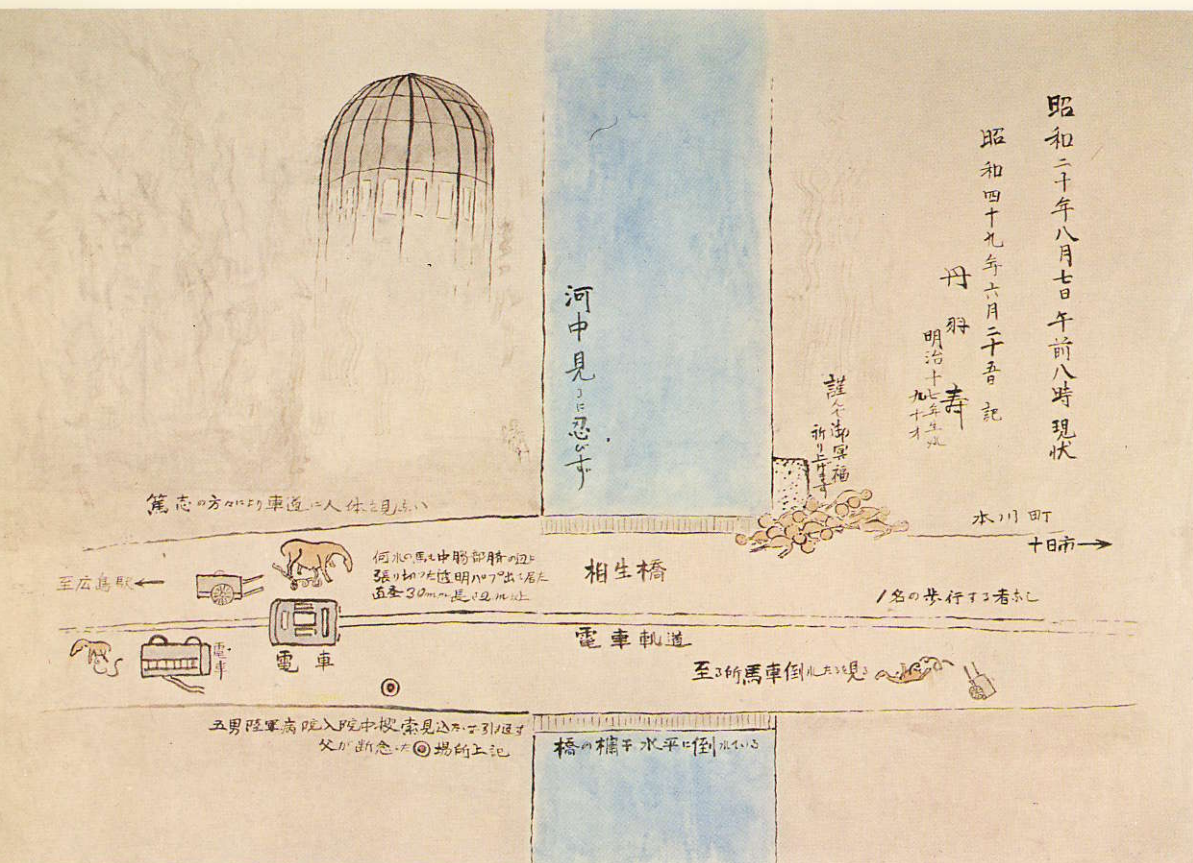 昭和二十年八月七日午前八時現状
昭和四十九年六月二十五日 記
丹羽 寿
明治十七年生
九十才
謹んで御冥福
祈り上げます
河中見るに忍びず
篤志の方々により車道に人体を見ない
本川町
十日市→
至広島駅←
何れの馬も中腸部臍の辺に
張り切った透明パイプ出て居た
直径30mm長さ2m以上
相生橋
1名の歩行する者なし
電車軌道
電車
電車
至る所馬車倒れたるを見る
五男陸軍病院入院中捜索見込なく引返す
父が断念した◎場所上記
橋の欄干水平に倒れている